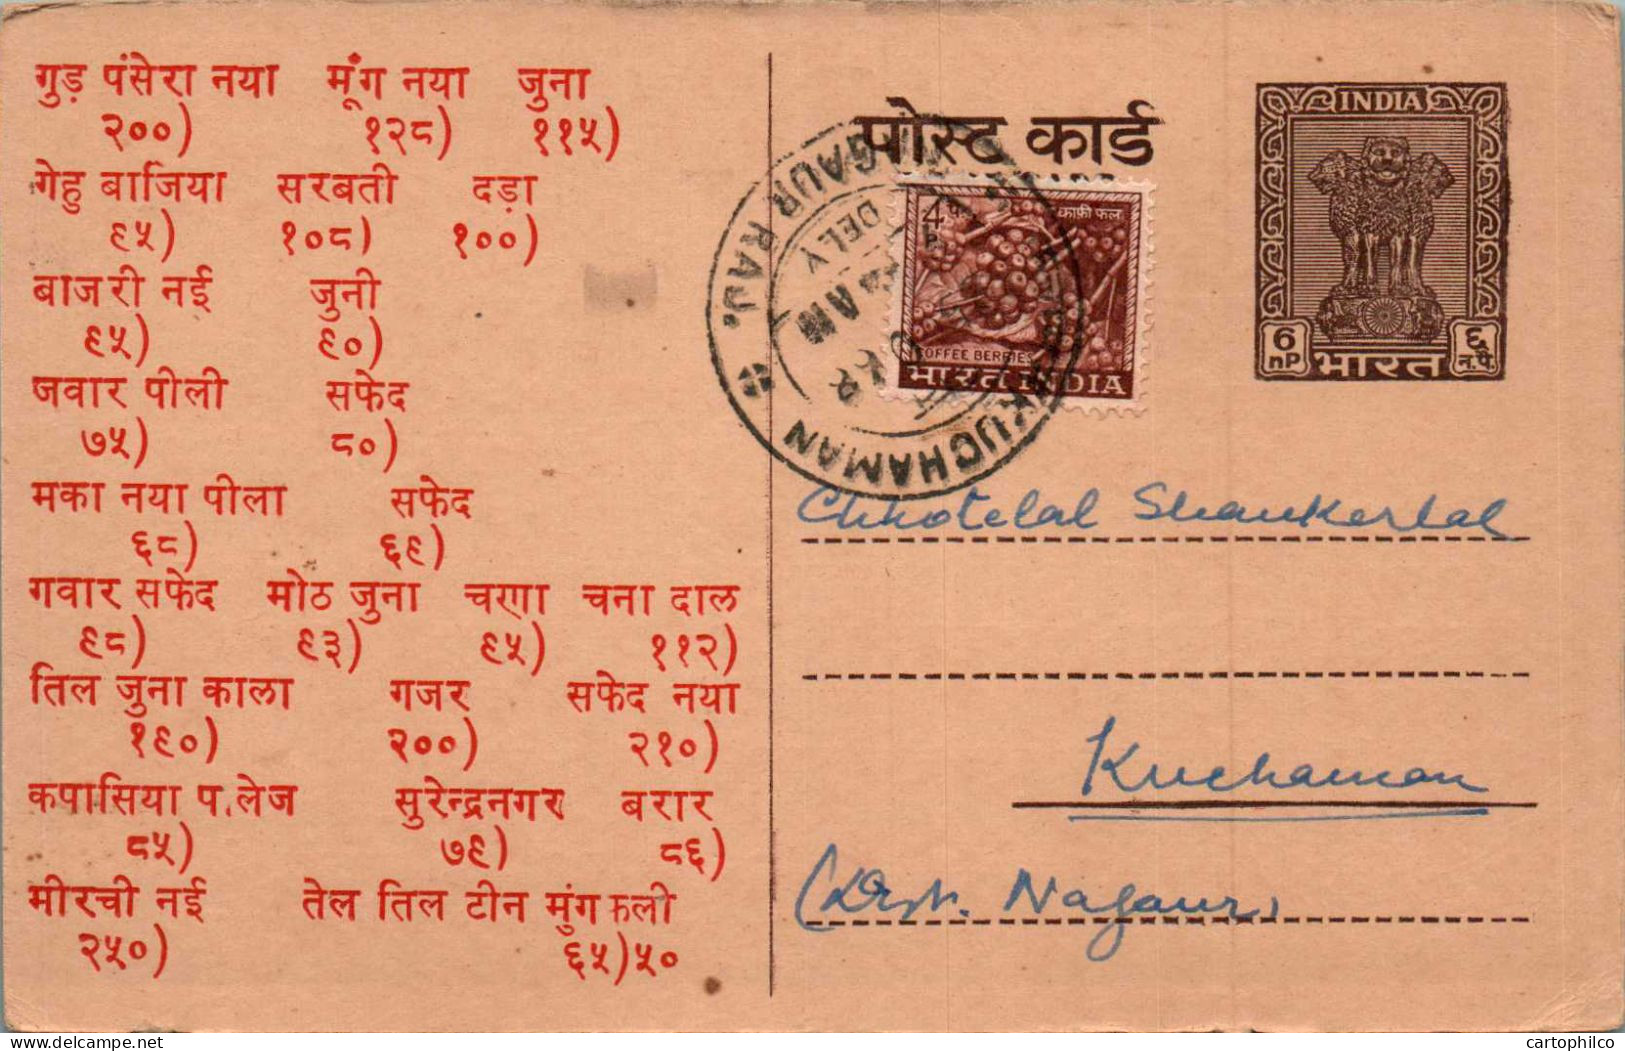 गुड़ पंसेरा नया मूंग नया जुना
२००) १२८) ११५)
गेहु बाजिया सरबती दड़ा
९५) १०८) १००)
बाजरी नई जुनी
९५) ९०)
जवार पीली सफेद
७५) ८०)
मका नया पीला सफेद
६८) ६९)
गवार सफेद मोठ जुना चणा चना दाल
९८) ९३) ९५) ११२)
तिल जुना काला गजर सफेद नया
१९०) २००) २१०)
कपासिया प.लेज सुरेन्द्रनगर बरार
८५) ७९) ८६)
मीरची नई तेल तिल टीन मुंगफली
२५०) ६५)५०
पोस्ट कार्ड
INDIA
6 nP
६ न.पै.
भारत
4 P
काफ़ी फल
COFFEE BERRIES
भारत INDIA
KUCHAMAN
GAUR RAJ.
DELY
Chhotelal Shankerlal
Kuchaman
(Dist. Nagaur)
cartophilco